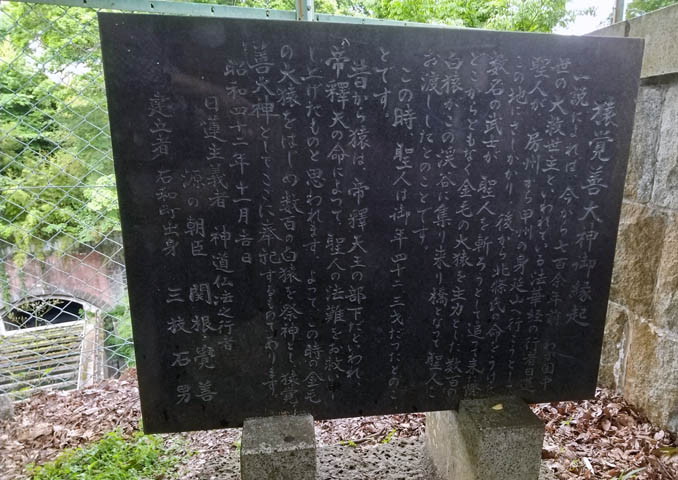 猿覚善大神御縁起
一説によれば、今から七百余年前
世の大救世主といわれている法華経の行者日蓮
聖人が、房州から甲州の身延山へ行こうとして
この地にさしかかり、後から北條氏の命をうけた
数名の武士が、聖人を斬ろうとして追って来た際
どこからともなく金毛の大猿を主力とした数百の
白猿がこの渓谷に集り来り橋となって聖人を
お渡ししたとのことです。
この時、聖人は御年四十二、三才だったとのこ
とです。
昔から猿は、帝釋天王の部下だといわれ、
帝釋天の命によって、聖人の法難をお救申
し上げたものと思われます。よって、この時の金毛
の大猿をはじめ数百の白猿を祭神とし猿覚
善大神としてここに奉祀するものであります。
昭和四十二年十一月吉日
日蓮主義者 神道仏法之行者
源の朝臣 関根覚善
建立者 石和町出身 三枝石男